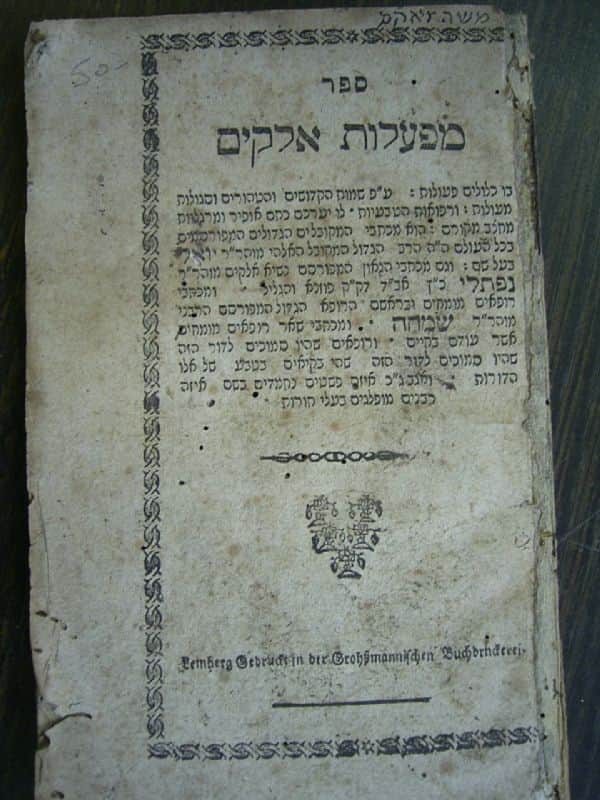 משה זאקס
50-
ספר
מפעלות אלקים
בו כלולים פעולות : ע"פ שמות הקדושים והטהורים וסגולות
מעולות : ורפואות הטבעיות · לו יערכם כתם אופיר ומרגליות
מחלב מקורם : הוא מכתבי המקובלים הגדולים המפורסמים
בכל העולם ה"ה הרב הגדול המקובל האלהי מוהר"ר יואל
בעל שם : וגם מכתבי הגאון המפורסם נשיא אלקים מוהר"ר
נפתלי כ"ץ אב"ד לק"ק פוזנא והגליל · ומכתבי
רופאים מומחים ובראשם הרופא הגדול המפורסם הרבני
מוהר"ר שמחה · ומכתבי שאר רופאים מומחים
אשר עודם בחיים · ורופאים שהיו סמוכים לדור הזה
שהיו סמוכים לדור הזה שהי בקיאים בטבע של אלו
הדורות · ומגב ג"כ איזה פשטים נחמדים בשם איזה
רבנים מופלגים בעלי תורות
Lemberg Gedruckt in der Grohßmannischen Buchdruckerei.